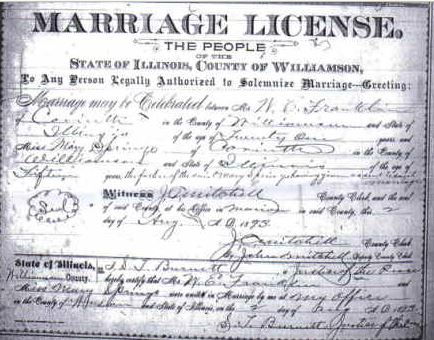 MARRIAGE LICENSE.
THE PEOPLE
OF THE
STATE OF ILLINOIS, COUNTY OF WILLIAMSON,
To Any Person Legally Authorized to Solemnize Marriage—Greeting:
Marriage may be Celebrated between Mr. W. E. Franklin
of in the County of Williamson and State of
Illinois of the age of Twenty One years and
Miss May Springs of in the County
Williamson and State of Illinois of the age of
Fifteen years, the
Witness J C Mitchell County Clerk, and the seal
of said County at his Office in Marion in said County, this 2
day of Aug A.D. 1893.
Seal
J C Mitchell County Clerk
By John Mitchell Deputy County Clerk
State of Illinois, I, S. T. Burnett a Justice of the Peace
Williamson County. hereby certify that Mr. W. E. Franklin
and Miss May Springs were united in Marriage by me at my office
in the County of Williamson and State of Illinois, on the 2 day of A.D. 1893.
S. T. Burnett Justice of